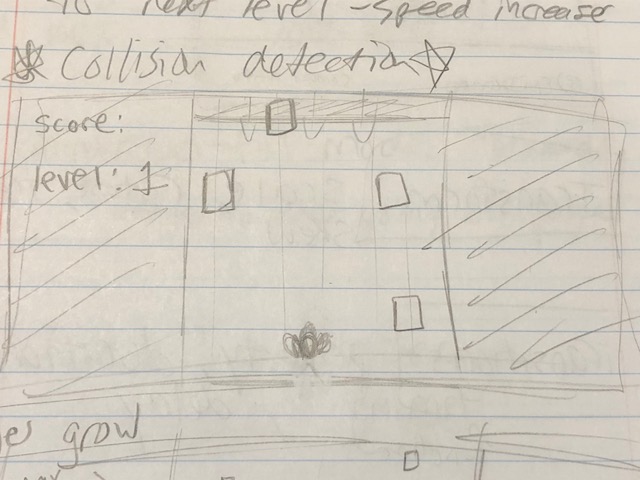 next level - speed increase
Collision detection
score:
level: 1